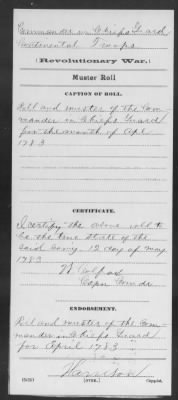 Commander in Chief's Guard
Continental Troops
(Revolutionary War.)
Muster Roll
CAPTION OF ROLL.
Roll and muster of the Com-
mander in Chiefs Guard
for the month of Apl
1783
CERTIFICATE.
I certify the above roll to
be the true state of the
said Comy. 12 day of May
1783
W Colfax
Capn Comdr
ENDORSEMENT.
Roll and muster of the Com-
mander in Chiefs Guard
for April 1783
(OVER.)
Copyist.